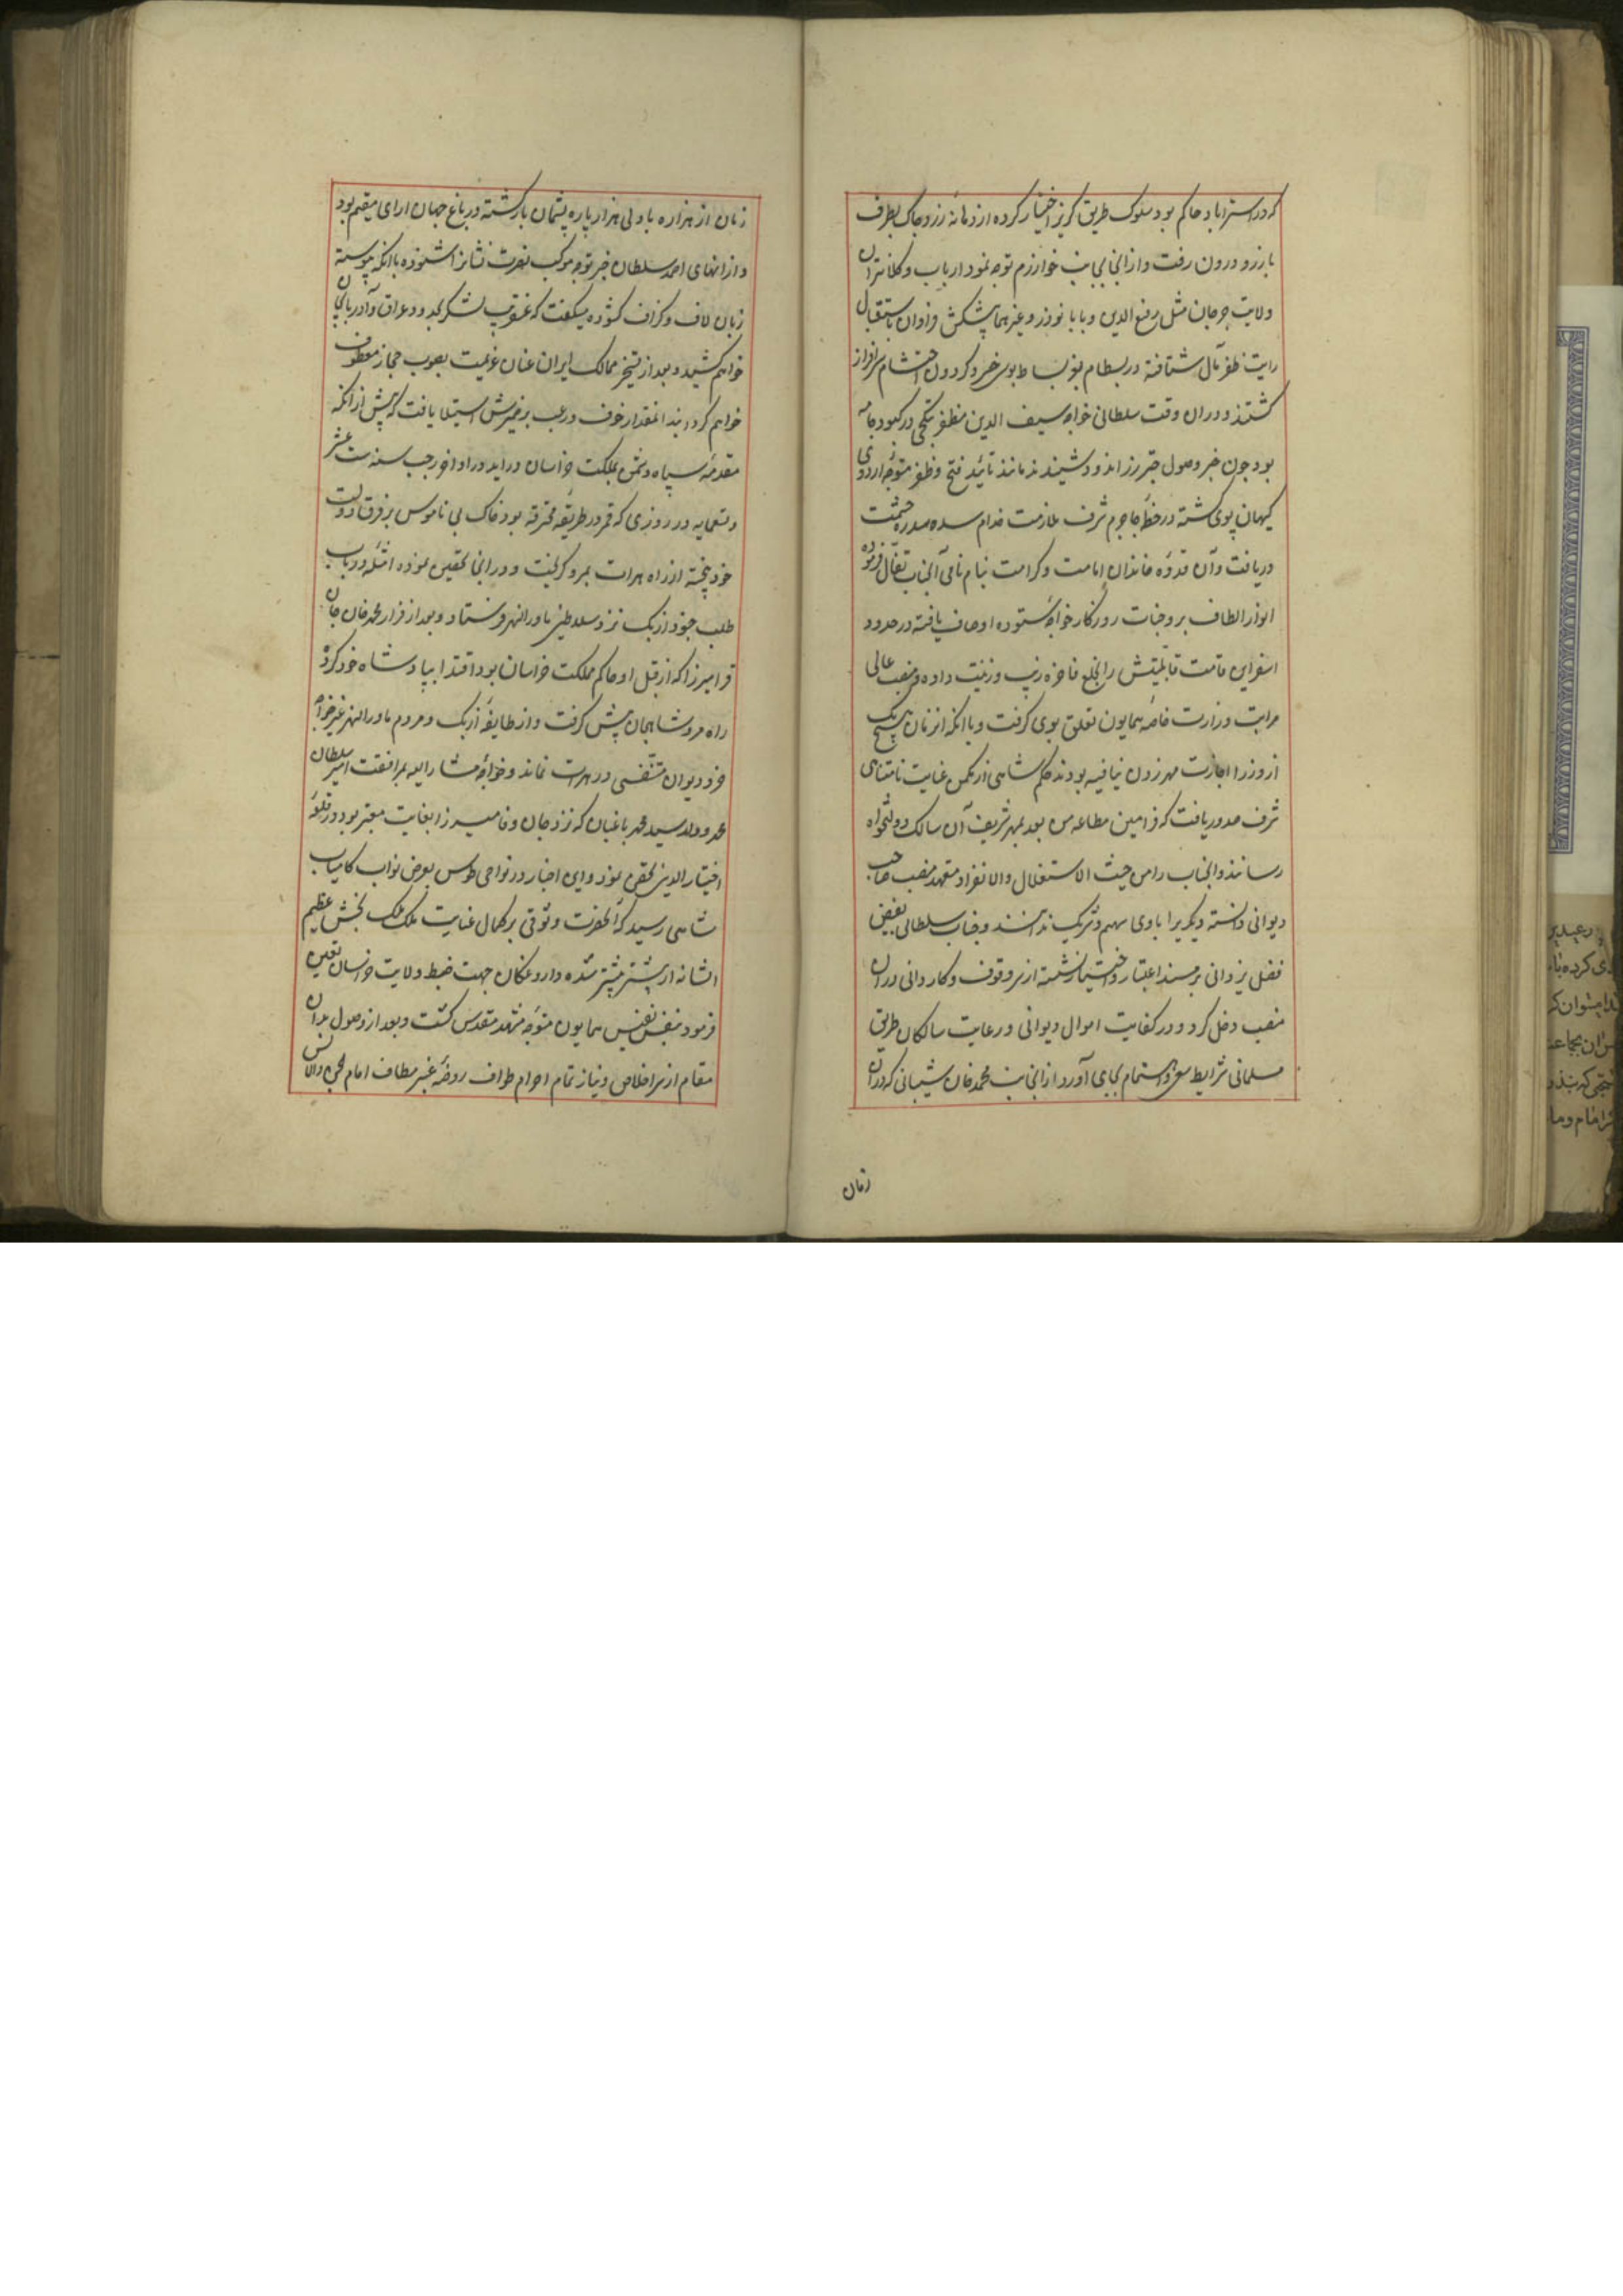 که در استراباد حاکم بود سلوک طریق گریز اختیار کرده از دمانه زرد چاک بطرف
بارزو درون رفت و از انجا بجانب خوارزم توجه نمود ارباب و کلانتران
ولایت جرجان مثل رفیع الدین و بابا نوذر و غیرهما پیشکش فراوان باستقبال
رایت ظفر مآل شتافته در بسطام بعز بساط بوسی خسرو گردون احتشام سرافراز
گشتند و در ان وقت سلطانی خواجه سیف الدین مظفر بتکچی در کبود جامه
بود چون خبر وصول جبر رزاند و شنید مانند تائید فتح و ظفر متوجه اردوی
کیهان پوی گشته در خطه جاجرم شرف ملازمت خدام سده سدره حشمت
دریافت و آن قدوه خاندان امامت و کرامت بنام نامی آنجناب تفأل فرموده
انوار الطاف بر وجنات روزگار خواجه ستوده اوصاف یافته در حدود
اسفراین قامت قابلیتش را بخلع فاخره زیب و زینت داده و منصب عالی
مراتب وزارت خاصه همایون تعلق بوی گرفت و با انکه از زمان هیچ یک
از وزرا اجازت مهر زدن نیافته بودند حکم شاهی از مکمن عنایت نامتناهی
شرف صدور یافت که فرامین مطاعه من بعد بمهر شریف آن سالک دولتخواه
رسانند و انجناب را من حیث الاستقلال و الانفراد متعهد منصب صاحب
دیوانی دانسته دیگریرا با وی سهیم و شریک ندانند و جناب سلطانی بفیض
فضل یزدانی بر مسند اعتبار و اختیار نشسته از سر وقوف و کاردانی در ان
منصب دخل کرد و در کفایت اموال دیوانی و رعایت سالکان طریق
مسلمانی شرایط سعی و اهتمام بجای آورد از انجانب محمد خان شیبانی که در ان
زمان
زمان از هزاره با دلی هزار پاره پشیمان بازگشته در باغ جهان ارای مقیم بود
و از انهای احمد سلطان خبر توجه موکب نصرت نشانرا شنوده با انکه پیوسته
زبان لاف و گزاف گشوده میگفت که عنقریب لشکر بحدود عراق و آذربایجان
خواهم کشید و بعد از تسخیر ممالک ایران عنان عزیمت بصوب حجاز معطوف
خواهم گردانید انمقدار خوف و رعب بر ضمیرش استیلا یافت که پیش از انکه
مقدمه سپاه دشمن بمملکت خراسان دراید در اواخر رجب سنه ست عشر
و تسعمایه در روزی که قمر در طریقه محترقه بود خاک بی ناموسی بر فرق دولت
خود بیخته از راه هرات بمرو گریخت و در انجا تحصین نموده امثله در باب
طلب جنود ازبک نزد سلاطین ماورالنهر فرستاد و بعد از فرار محمد خان جان
قرا میرزا که از قبل او حاکم مملکت خراسان بود اقتدا بپادشاه خود کرده
راه مرو شاهجان پیش گرفت و از طایفه ازبک و مردم ماورالنهر غیر خواجه
خرد دیوان متنفسی در هرات نماند و خواجه مشار الیه بمرافقت امیر سلطان
محمد و ولد سید محمد باغبان که نزد جان وفا میرزا بغایت معتبر بود در قلعه
اختیار الدین تحصن نمود و این اخبار در نواحی طوس بعرض نواب کامیاب
شاهی رسید که آنحضرت وثوقی بر کمال عنایت ملک ملک بخش عظیم
الشانه از پیشتر بیشتر شده داروغگان جهت ضبط ولایت خراسان تعیین
فرمود بنفس نفیس همایون متوجه مشهد مقدس گشت و بعد از وصول بدان
مقام از سر اخلاص و نیاز تمام احرام طواف روضه عنبر مطاف امام الجن و الانس